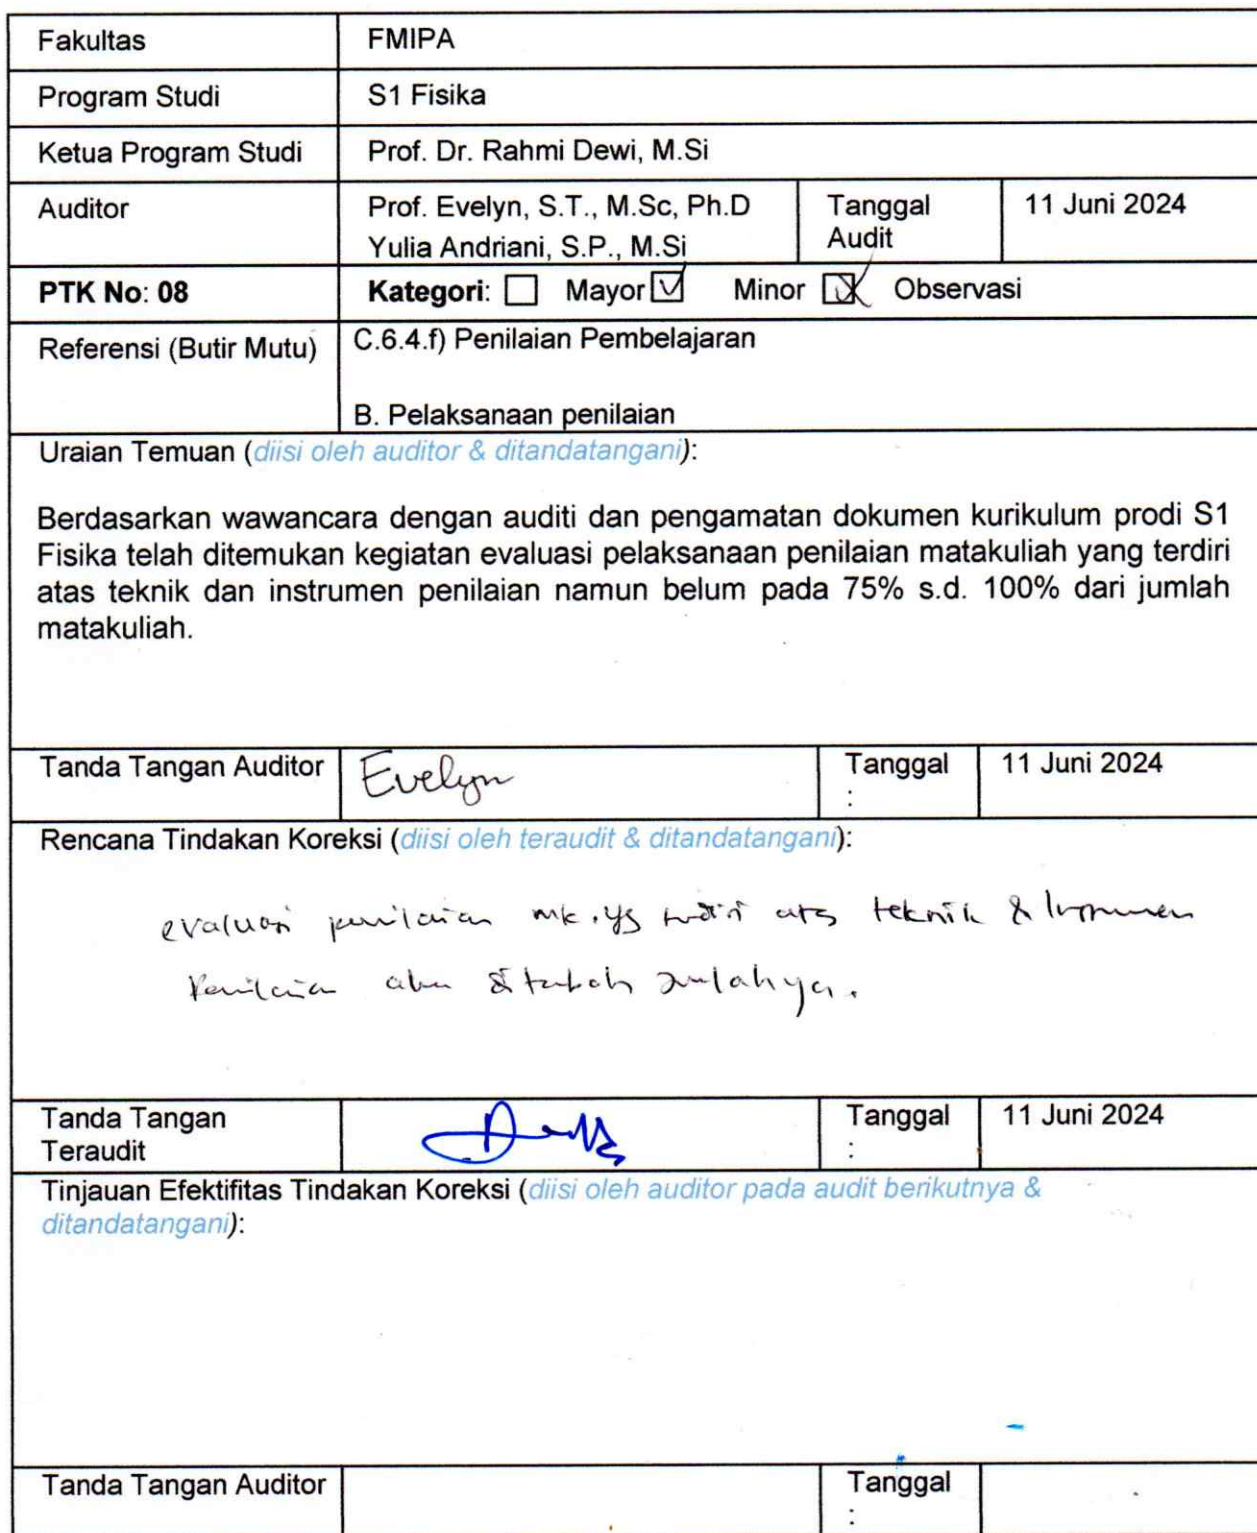 Fakultas FMIPA
Program Studi S1 Fisika
Ketua Program Studi Prof. Dr. Rahmi Dewi, M.Si
Auditor Prof. Evelyn, S.T., M.Sc, Ph.D Tanggal 11 Juni 2024
Yulia Andriani, S.P., M.Si Audit
PTK No: 08 Kategori: ☐ Mayor ☑ Minor ☒ Observasi
Referensi (Butir Mutu) C.6.4.f) Penilaian Pembelajaran
B. Pelaksanaan penilaian
Uraian Temuan (diisi oleh auditor & ditandatangani):
Berdasarkan wawancara dengan auditi dan pengamatan dokumen kurikulum prodi S1
Fisika telah ditemukan kegiatan evaluasi pelaksanaan penilaian matakuliah yang terdiri
atas teknik dan instrumen penilaian namun belum pada 75% s.d. 100% dari jumlah
matakuliah.
Tanda Tangan Auditor Evelyn Tanggal 11 Juni 2024
:
Rencana Tindakan Koreksi (diisi oleh teraudit & ditandatangani):
evaluasi penilaian mk. yg terdiri atas teknik & Instrumen
Penilaian akan ditambah jumlahnya.
Tanda Tangan Tanggal 11 Juni 2024
Teraudit :
Tinjauan Efektifitas Tindakan Koreksi (diisi oleh auditor pada audit berikutnya &
ditandatangani):
Tanda Tangan Auditor Tanggal
: